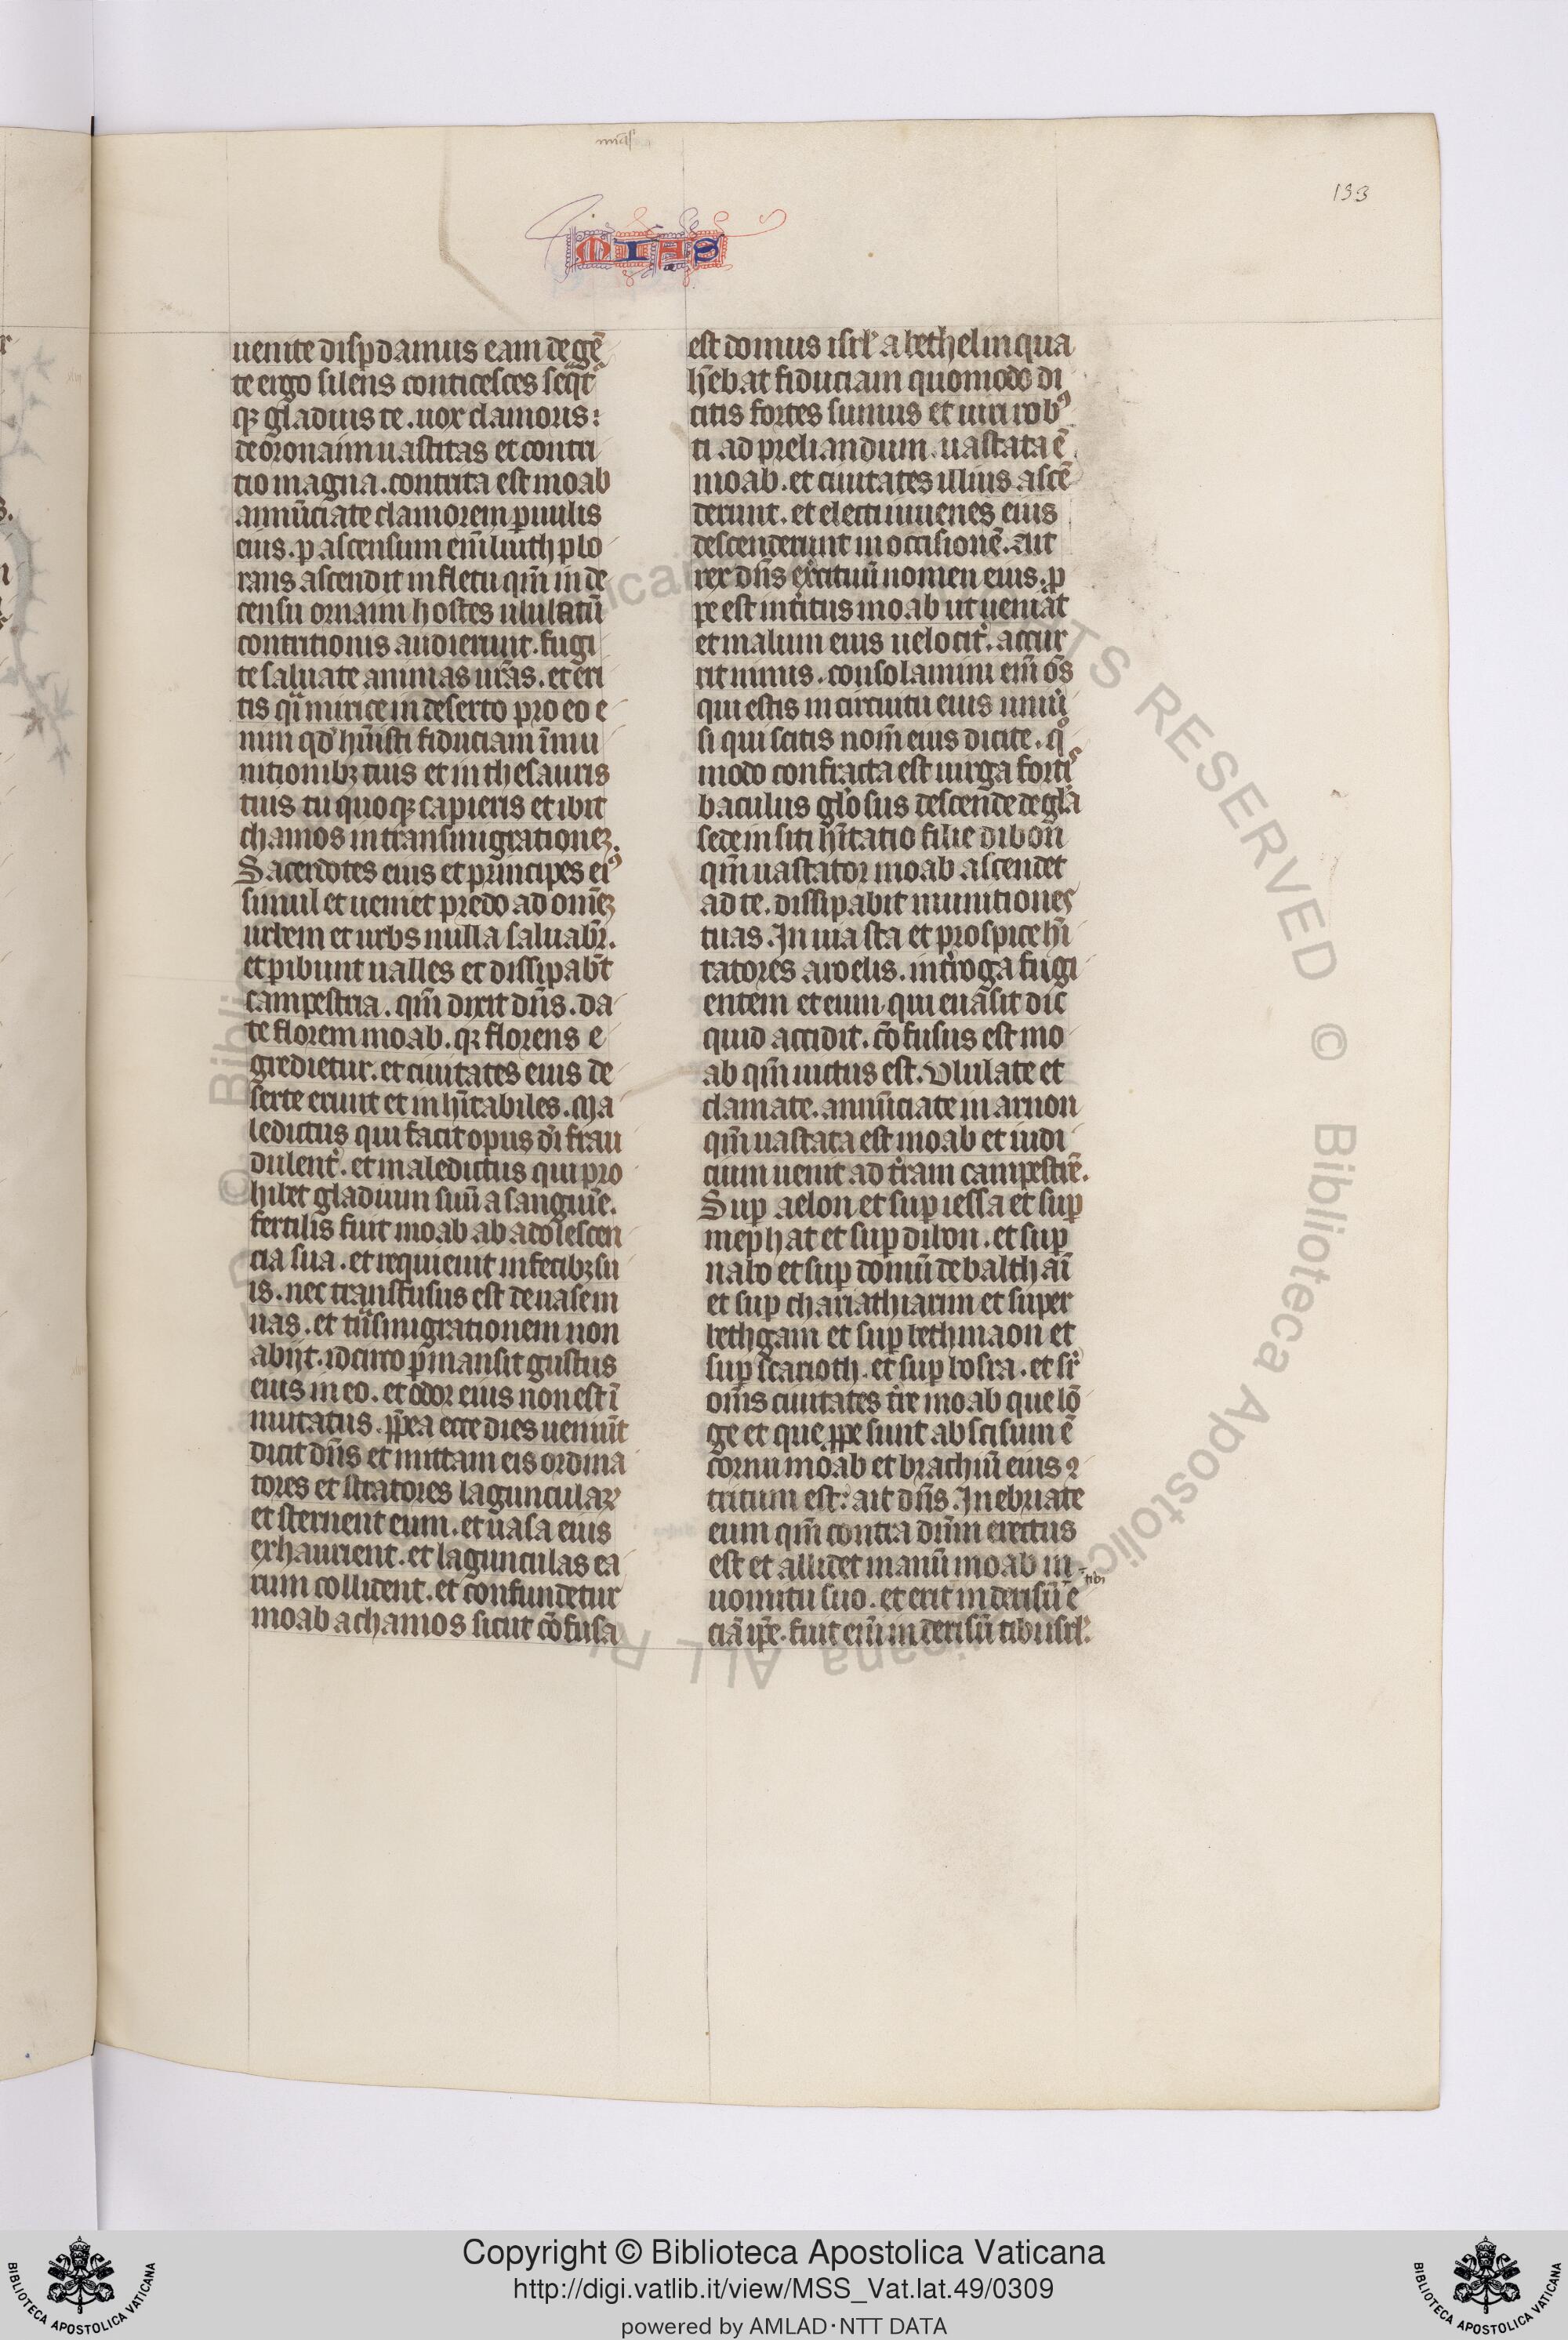 133
MIAS
uenite disp̱damus eam de gē
te ergo silens conticesces seq̄t᷑
qꝫ gladius te . uox clamoris :
de oronaim uastitas et contri
tio magna . contrita est moab
annūciate clamorem ꝑuulis
eius . ꝑ ascensum eni̅ liuith plo
rans ascendit in fletu qm̅ in de
censu ornaim hostes ululatū
contritionis audierunt . fugi
te saluate animas ur̅as . et eri
tis q̈i mirice in deserto pro eo e
nim qd̕ hui̅sti fiduciam ī mu
nitionibꝫ tuis et in thesauris
tuis tu quoqꝫ capieris et ibit
chamos in transmigrationeꝫ .
Sacerdotes eius et principes ei⁹
simul et ueniet predo ad om̅eꝫ
urbem et urbs nulla saluabr̅ .
et ꝑibunt ualles et dissipabn̅t
campestria . qm̅ dixit dn̅s . da
te florem moab . qꝛ florens e
gredietur . et ciuitates eius de
serte erunt et inhi̅tabiles . Ma
ledictus qui facit opus dn̅i frau
dulent᷑ . et maledictus qui pro
hibet gladium suū a sanguin̅e .
fertilis fuit moab ab adolescen
cia sua . et requieuit in fecibꝫ su
is . nec transfusus est de uase in
uas . et tn̅smigrationem non
abijt . idcirco ꝑmansit gustus
eius in eo . et odor eius non est ī
mutatus . ꝓpt̅ea ecce dies ueniūt
dicit dn̅s et mittam eis ordina
tores et stratores lagunculaꝝ
et sternent eum . et uasa eius
exhaurient . et lagunculas ea
rum collident . et confundetur
moab a chamos sicut cōfusa
est domus isrl̕ a bethel in qua
hēbat fiduciam quomodo di
citis fortes sumus et uiri rob⁹
ti ad preliandum . uastata ē
moab . et ciuitates illius ascē
derunt . et electi iuuenes eius
descenderunt in occisionē . ait
rex dn̅s ex̕cituū nomen eius . ꝓ
pe est int᷑itus moab ut ueniāt
et malum eius uelocit᷑ . accur
rit nimis . consolamini eni̅ o̅s
qui estis in circuitu eius uniu᷑
si qui scitis nom̅ eius dicite . qͦ
modo confracta est uirga forti᷒
baculus glo̅sus descende de gla̅
sede in siti hi̅tatio filie dibon̅
qm̅ uastator moab ascendet
ad te . dissipabit munitiones
tuas . In uia sta et prospice hi̅
tatores aroelis . int᷑roga fugi
entem et eum qui euasit dic
quid accidit . cōfusus est mo
ab qm̅ uictus est . Ululate et
clamate . annūciate in arnon
qm̅ uastata est moab et iudi
cium uenit ad t᷑ram campestrē .
Sup̱ aelon et sup̱ iessa et sup̱
mephat et sup̱ dibon . et sup̱
nabo et sup̱ domū debalthai̅
et sup̱ chariathiarim et super
bethgam et sup̱ bethmaon et
sup̱ scarioth . et sup̱ bosra . et sr᷑
om̅s ciuitates t᷑re moab que lō
ge et que ꝓpe sunt abscisum ē
cornu moab et brachiū eius ꝯ
tritum est : ait dn̅s . Inebriate
eum qm̅ contra dn̅m erectus
est et allidet manū moab in
uomitu suo . et erit in derisū e
tibi
ciā ip̅e . fuit eni̅ in derisū tibi isrl̕ .
Copyright © Biblioteca Apostolica Vaticana
http://digi.vatlib.it/view/MSS_Vat.lat.49/0309
powered by AMLAD·NTT DATA
BIBLIOTECA APOSTOLICA VATICANA
BIBLIOTECA APOSTOLICA VATICANA